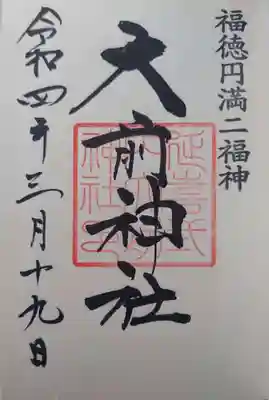 福徳円満二福神
大前神社
令和四年三月十九日